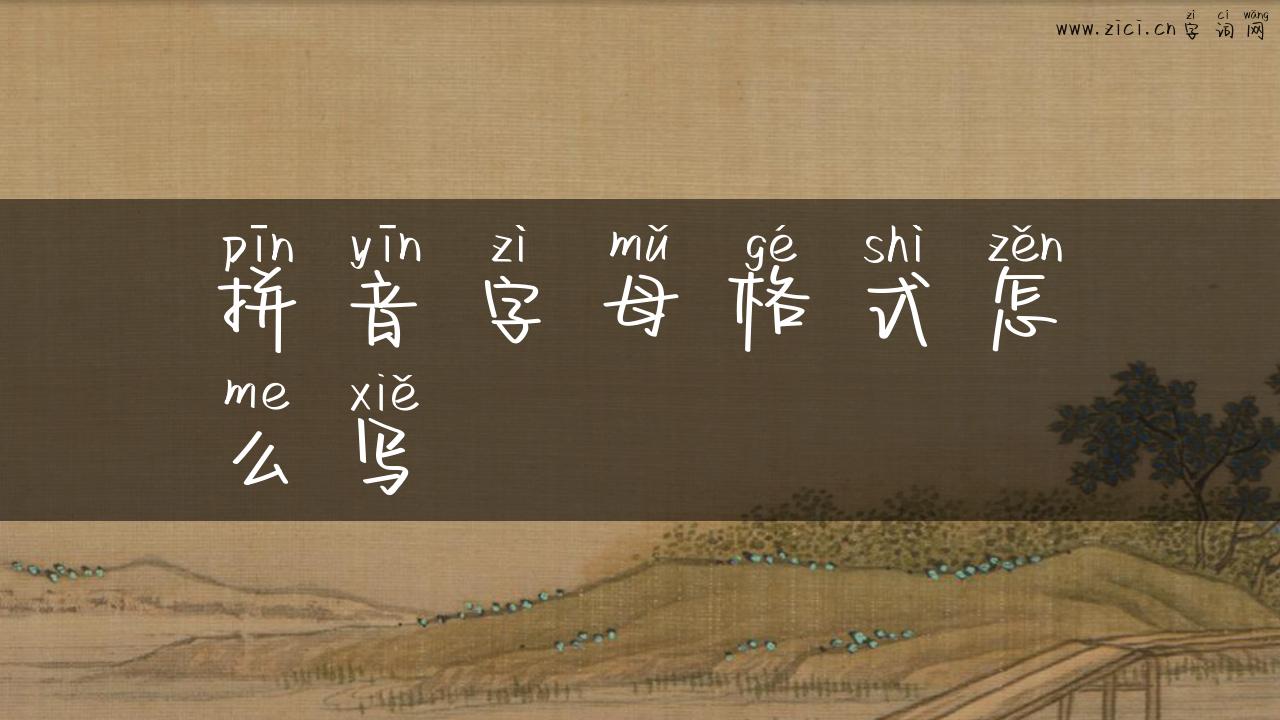 zì cí wǎng
www.zici.cn 字 词 网
pīn yīn zì mǔ gé shì zěn
拼 音 字 母 格 式 怎
me xiě
么 写